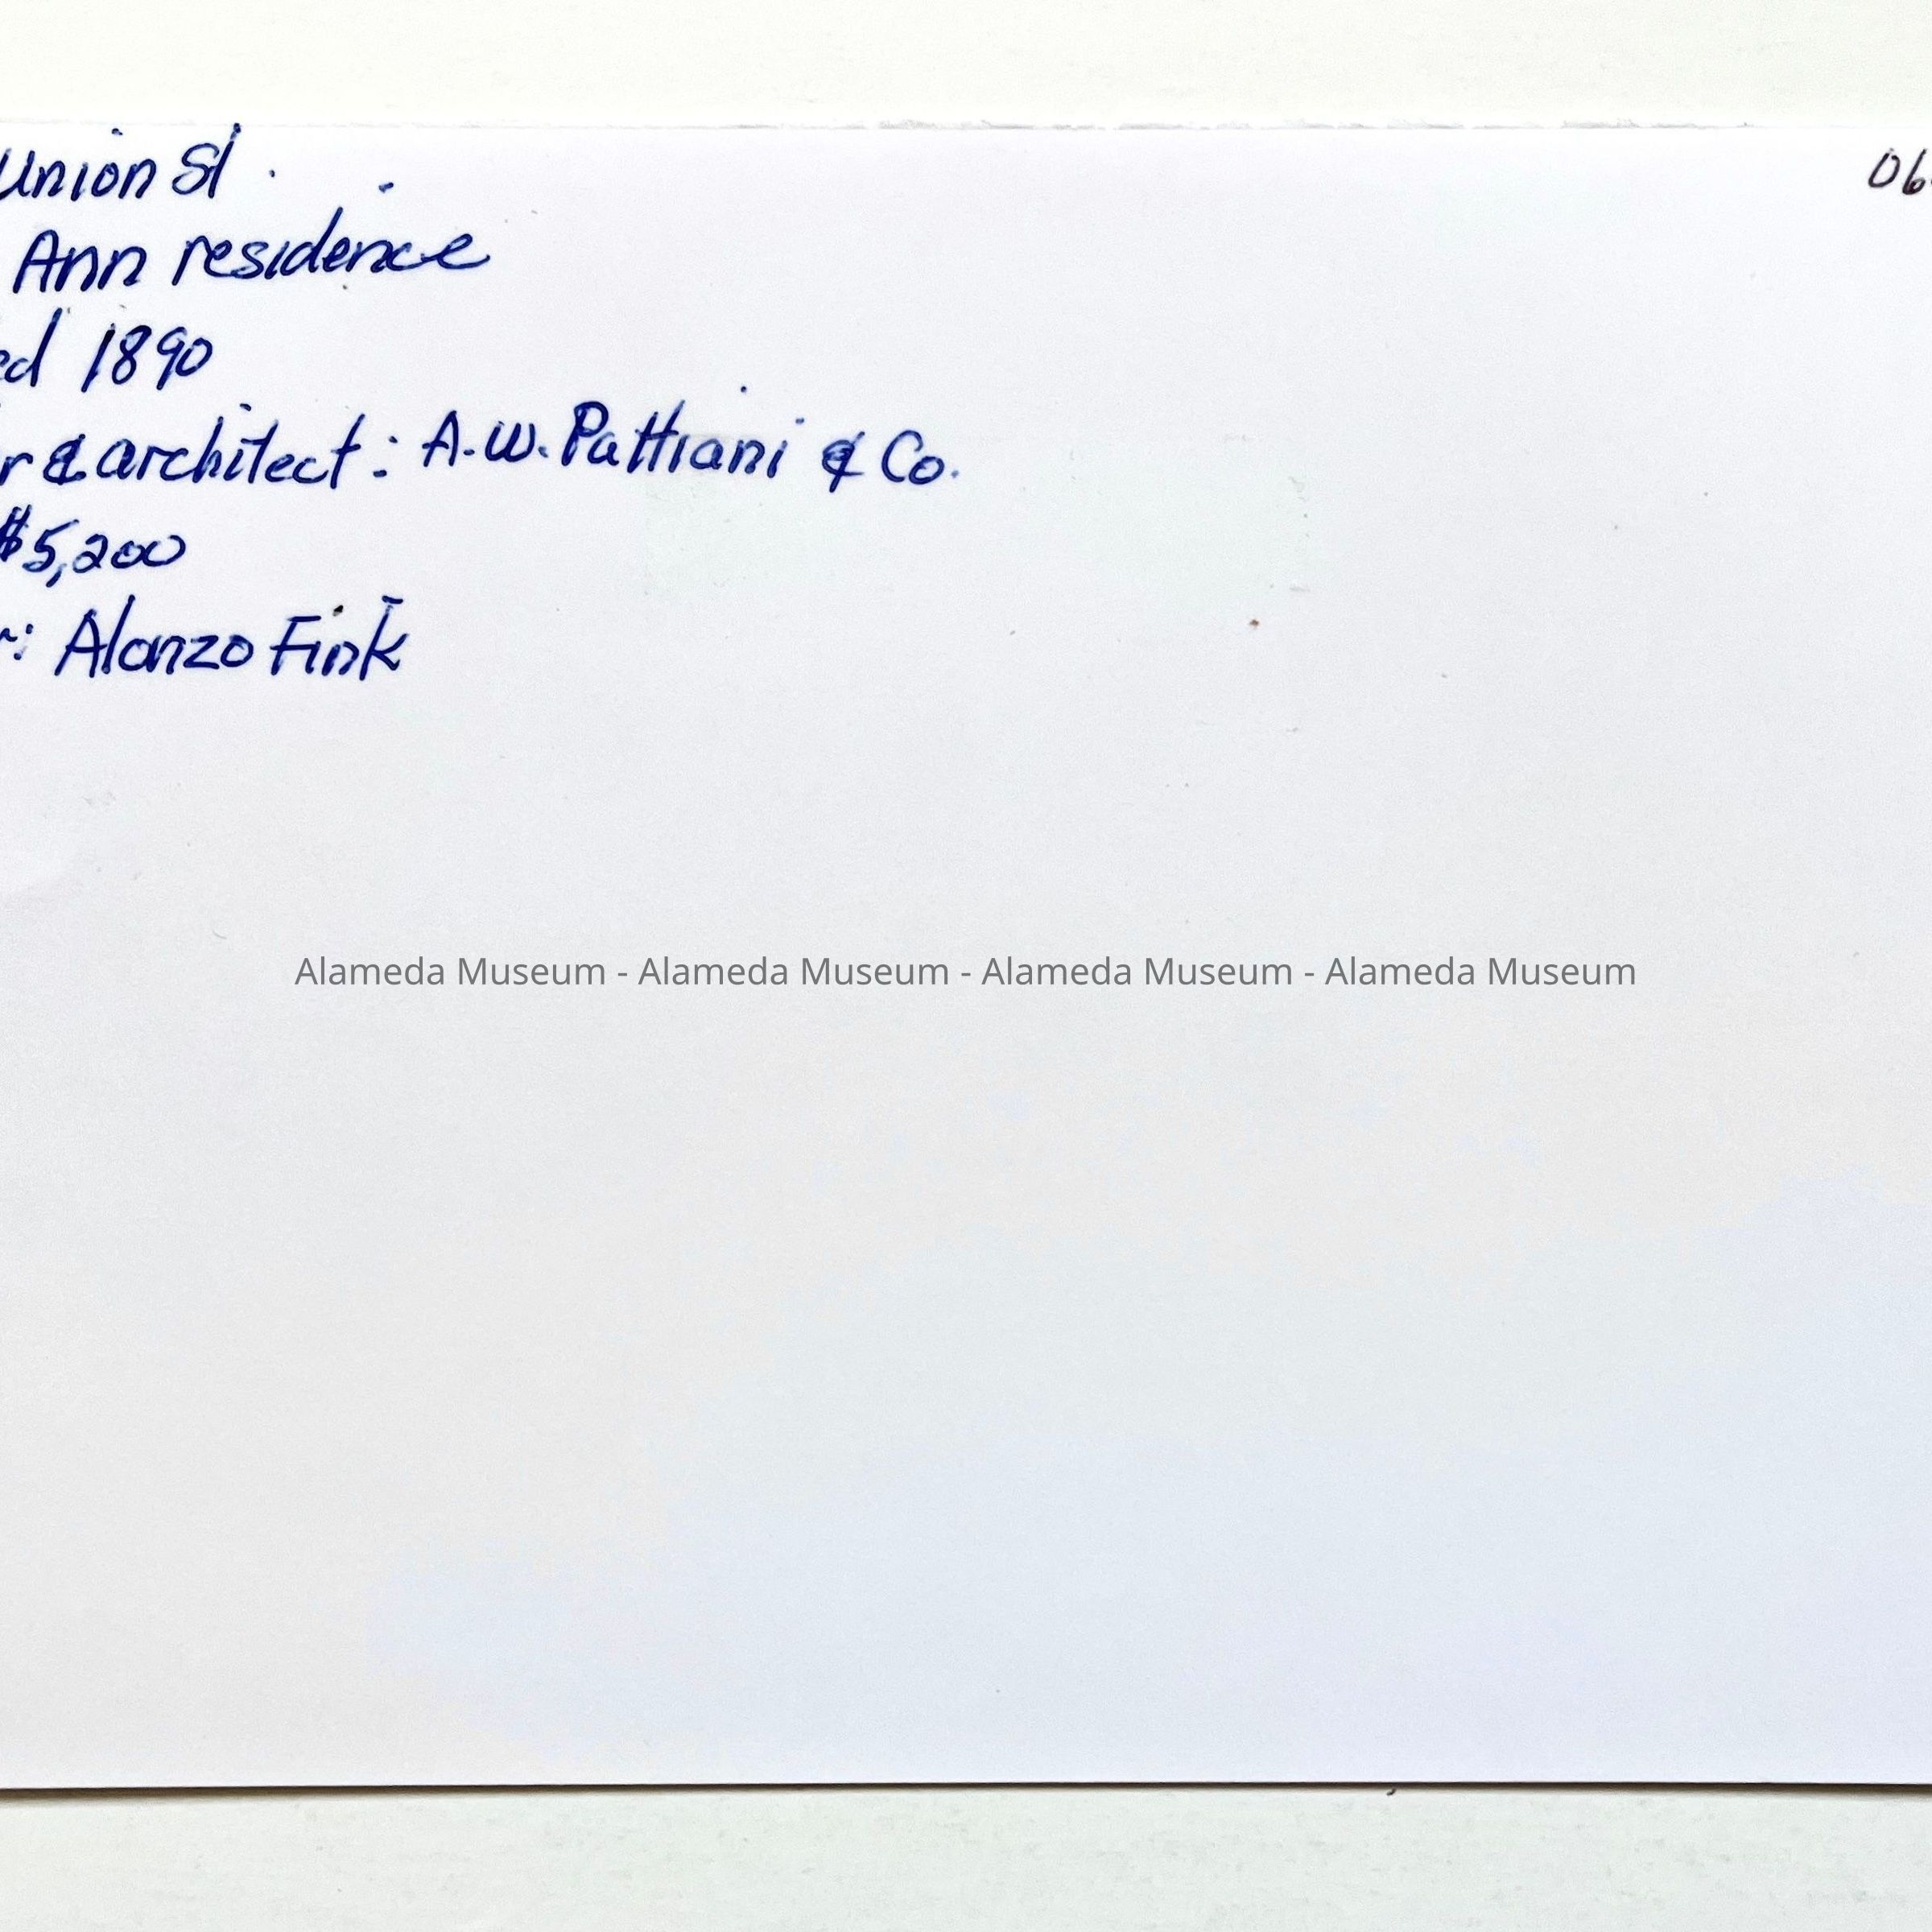 Union St.
06
Ann residence
ed 1890
r & architect: A.W. Pattiani & Co.
$5,200
r: Alonzo Fink
Alameda Museum - Alameda Museum - Alameda Museum - Alameda Museum